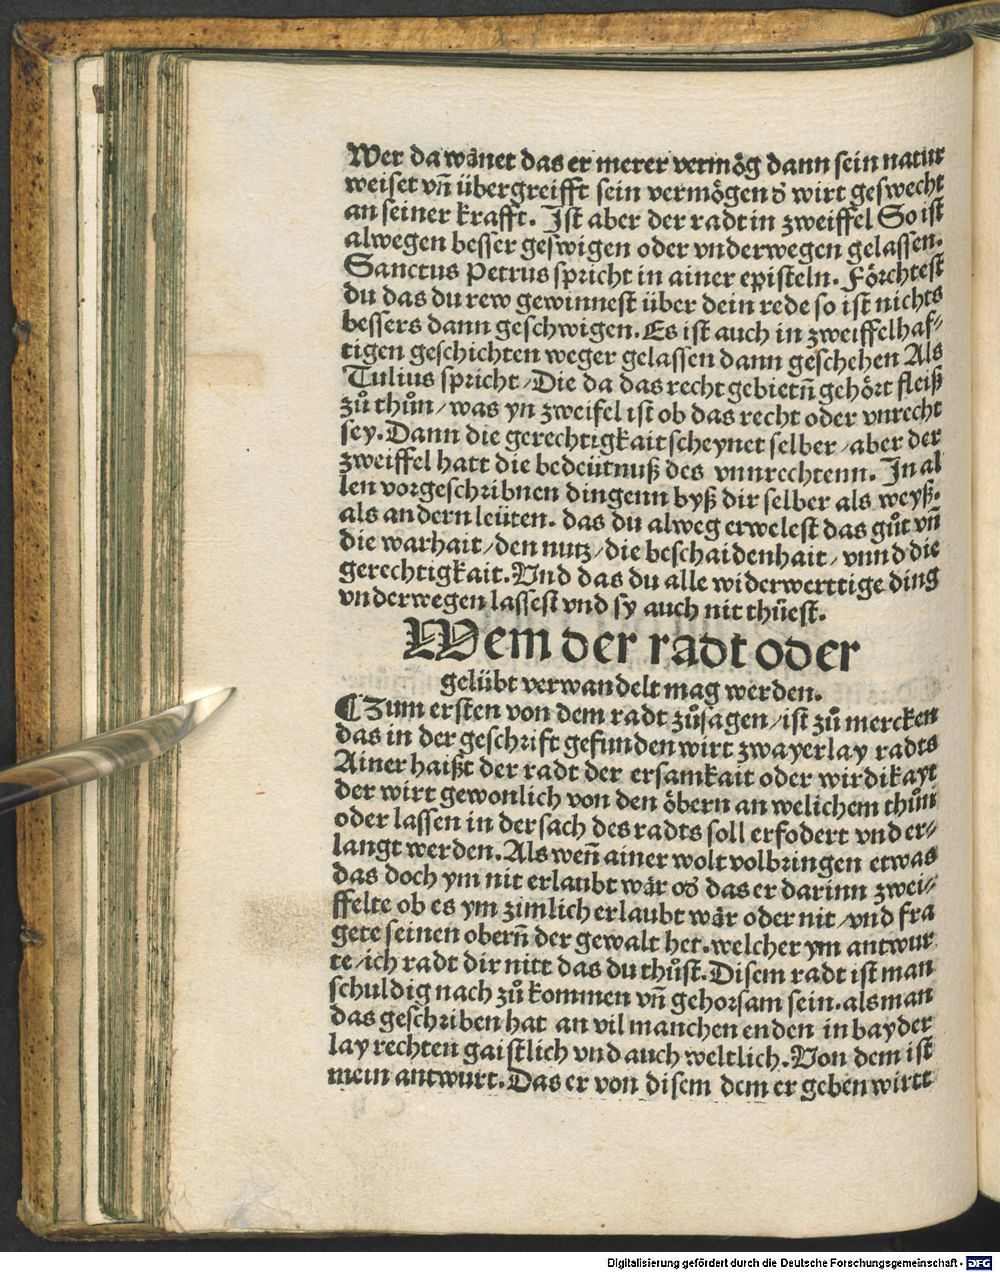 Wer da wänet das er merer vermög dann sein natur
weiset vñ übergreifft sein vermögen ð wirt geswecht
an seiner krafft. Ist aber der radt in zweiffel So ist
alwegen besser geswigen oder vnderwegen gelassen.
Sanctus Petrus spricht in ainer episteln. Förchtest
du das du rew gewinnest über dein rede so ist nichts
bessers dann geschwigen. Es ist auch in zweiffelhaf⸗
tigen geschichten weger gelassen dann geschehen Als
Tulius spricht/Die da das recht gebietñ gehört fleiß
zů thůn/was yn zweifel ist ob das recht oder vnrecht
sey. Dann die gerechtigkait scheynet selber/aber der
zweiffel hatt die bedeütnuß des vnnrechtenn. In al
len vorgeschribnen dingenn byß dir selber als weyß.
als andern leüten. das du alweg erwelest das gůt vñ
die warhait/den nutz/die beschaidenhait/vnnd die
gerechtigkait. Vnd das du alle widerwerttige ding
vnderwegen lassest vnd sy auch nit thüest.
Wem der radt oder
gelübt verwandelt mag werden.
¶Zum ersten von dem radt zůsagen/ist zů mercken
das in der geschrift gefunden wirt zwayerlay radts
Ainer haißt der radt der ersamkait oder wirdikayt
der wirt gewonlich von den öbern an welichem thůn
oder lassen in der sach des radts soll erfodert vnd er⸗
langt werden. Als weñ ainer wolt volbringen etwas
das doch ym nit erlaubt wär oð das er darinn zwei⸗
ffelte ob es ym zimlich erlaubt wär oder nit/vnd fra
gete seinen oberñ der gewalt het. welcher ym antwur
te/ich radt dir nitt das du thůst. Disem radt ist man
schuldig nach zů kommen vñ gehorsam sein. als man
das geschriben hat an vil manchen enden in bayder
lay rechten gaistlich vnd auch weltlich. Von dem ist
mein antwurt. Das er von disem dem er geben wirtt
Digitalisierung gefördert durch die Deutsche Forschungsgemeinschaft - DFG